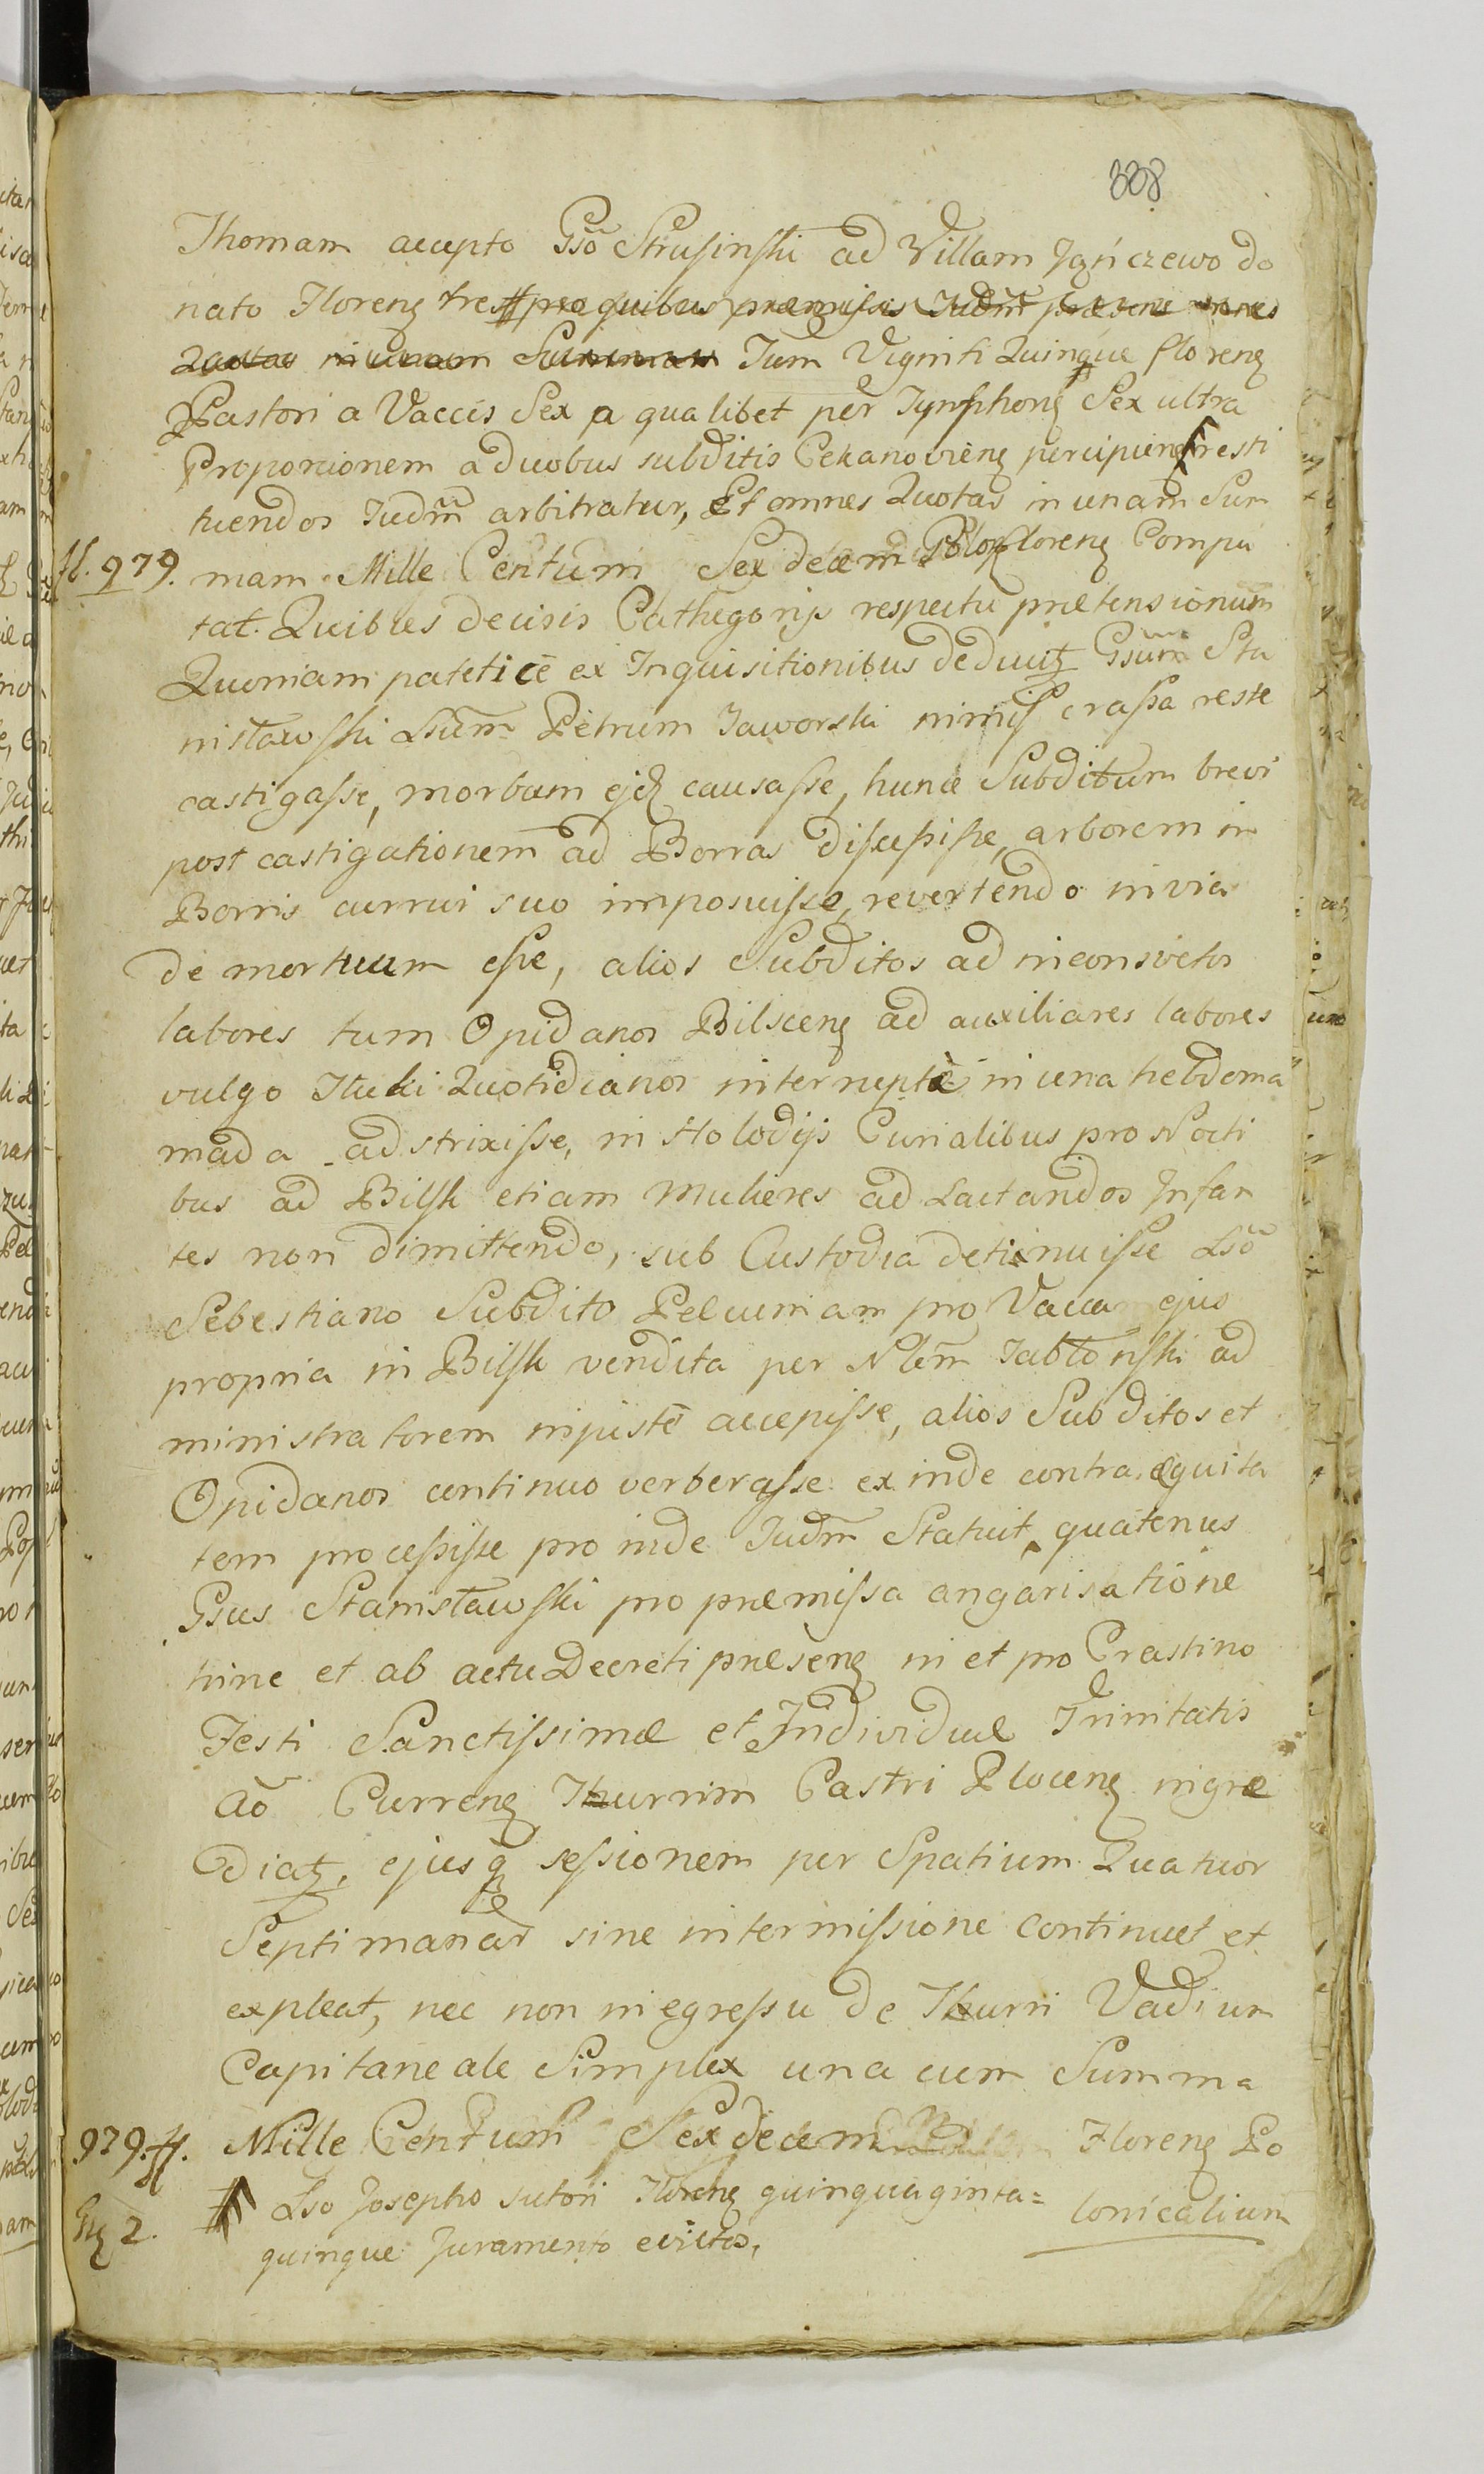 338
Thomam accepto Gso Strusinski ad Villam Jgńczewo do
nato Floreng tres pro quibus præmissis Iudm præsens omnes
Quotas in unam Summam Tum Viginti Quinque floreng
Pastori a Vaccis Sex a qualibet per Tynphong Sex ultra
Proporcionem a duobus subditis Cekanovieng percipieng resti
tuendos Iudm arbitratur, Et omnes Quotas in unam Sum
fl. 979. mam Mille Centum Sex decem floreng Compu
tat. Quibus decisis Cathegorijs respectu prætensionum
Quoniam patetice ex Inquisitionibus deducitz Gsum Sta
nisławski Lsum Petrum Jaworski nimis crassa reste
castigasse, morbum ejq causasse, hunc Subditum brevi
post castigationem ad Borras discessisse, arborem in
Borris currui suo imposuisse, revertendo in via
de mortuum esse, alios Subditos ad inconsvetos
labores tum Opidanos Bilsceng ad auxiliares labores
vulgo Tłuki Quotidianos interruptè in una hebdoma
mada adstrixisse, in Holodijs Curialibus pro Nocti
bus ad Bilsk etiam Mulieres ad Lactandos Infan
tes non dimittendo, sub Custodia detinuisse Lso
Sebestiano Subdito Pelcuniam pro Vacca ejus
propria in Bilsk vendita per Nlem Jabłonski ad
ministratorem injustè accepisse, alios Subditos et
Opidanos continuo verberasse ex inde contra equita
tem processisse pro inde Iudm Statuit, quatenus
Gsus Stanisławski pro præmissa angarisatione
hinc et ab actu Decreti præseng in et pro Crastino
Festi Sanctissimæ et Individuæ Trinitatis
Ao Curreng Thurrim Castri Ploceng ingre
diatz, ejusq sessionem per Spatium Quatuor
Septimanar sine intermissione continuet et
expleat, nec non in egressu de Thurri Vadium
Capitaneale Simplex una cum Summa
979. ff. Mille Centum Sex decem Floreng Po
lonicalium
Lso Josepho sutori Floreng quinquaginta=
quinque Juramento evictos,